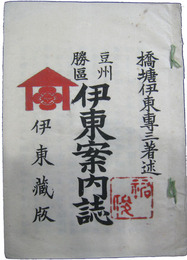 橋塘伊東專三著述
豆州
勝區
伊東案内誌
伊東藏版